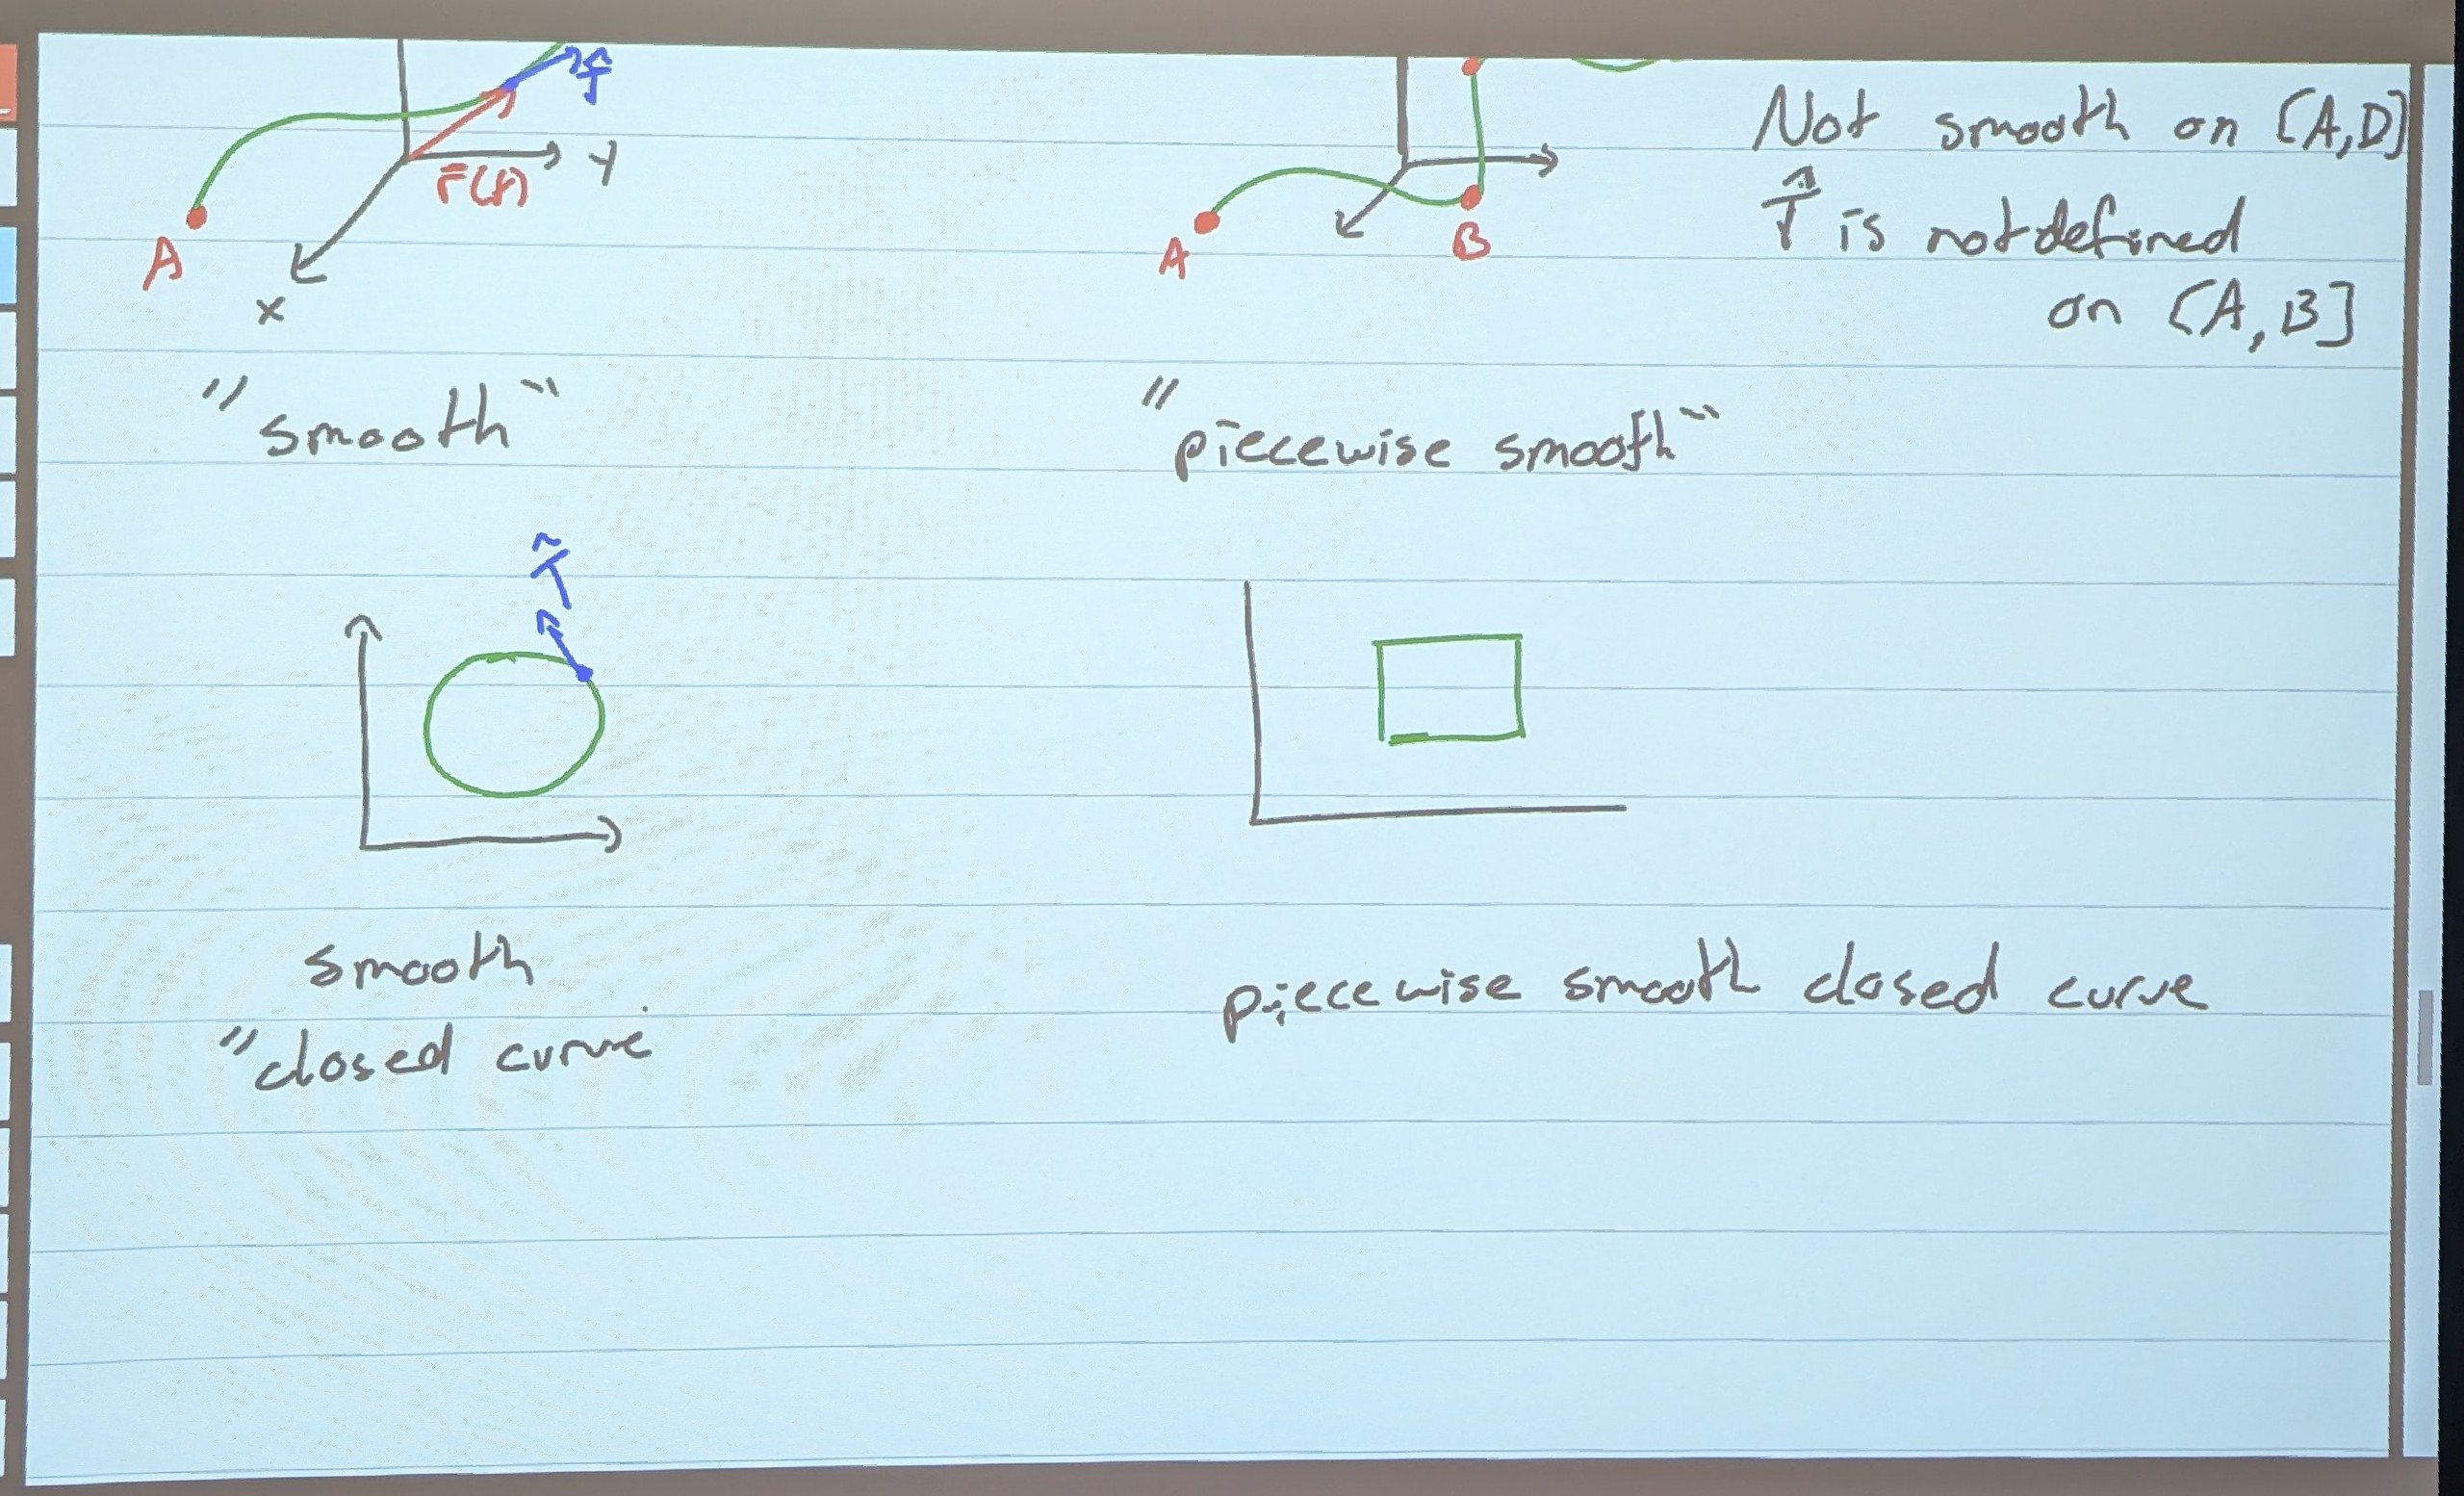 T̂
y
r̄(t)
A
x
"smooth"
A
B
Not smooth on [A,D]
T̂ is not defined
on [A,B]
"piecewise smooth"
T̂
smooth
"closed curve
piecewise smooth closed curve